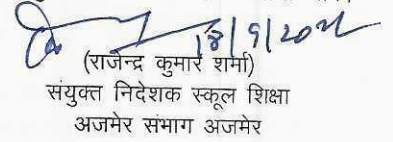 18/9/2021
(राजेन्द्र कुमार शर्मा)
संयुक्त निदेशक स्कूल शिक्षा
अजमेर संभाग अजमेर